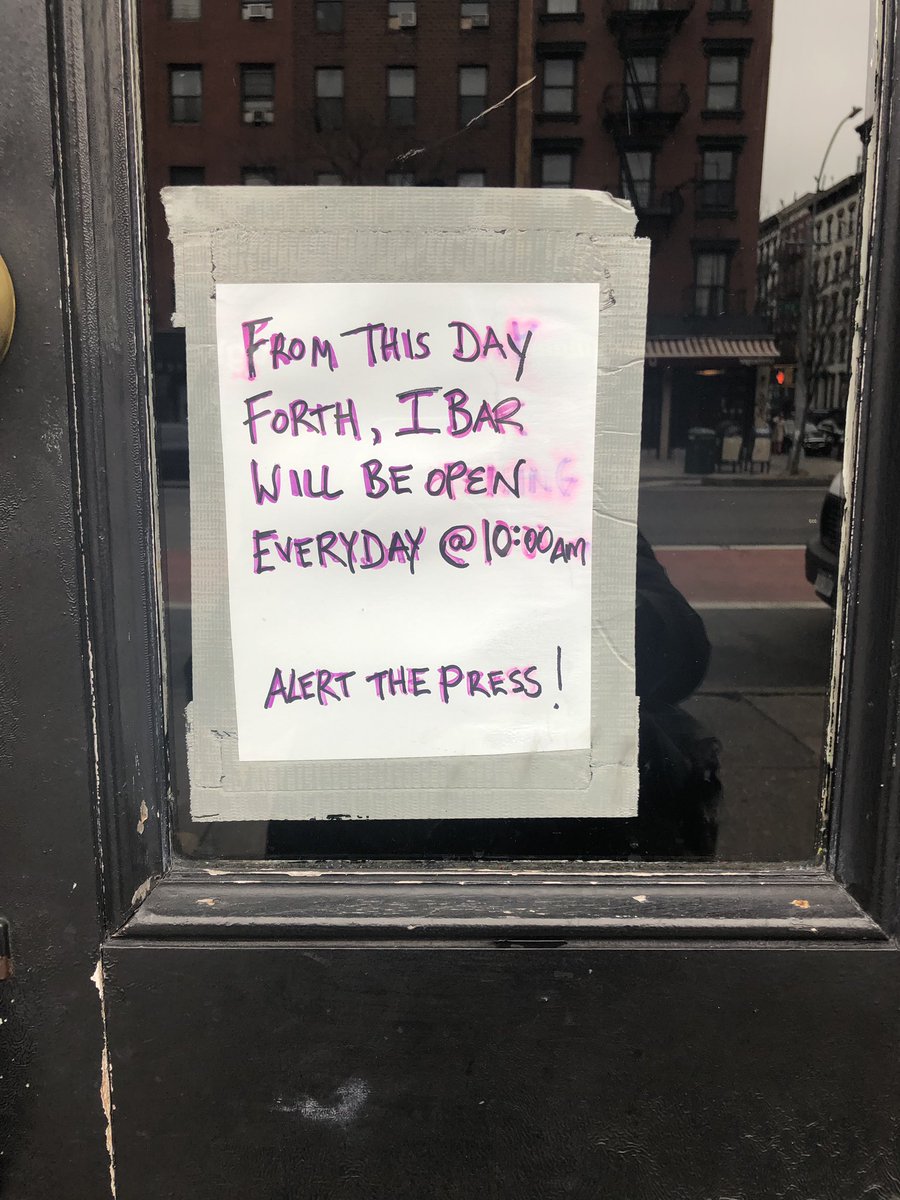 FROM THIS DAY
FORTH, I BAR
WILL BE OPEN
EVERYDAY @ 10:00AM
ALERT THE PRESS!